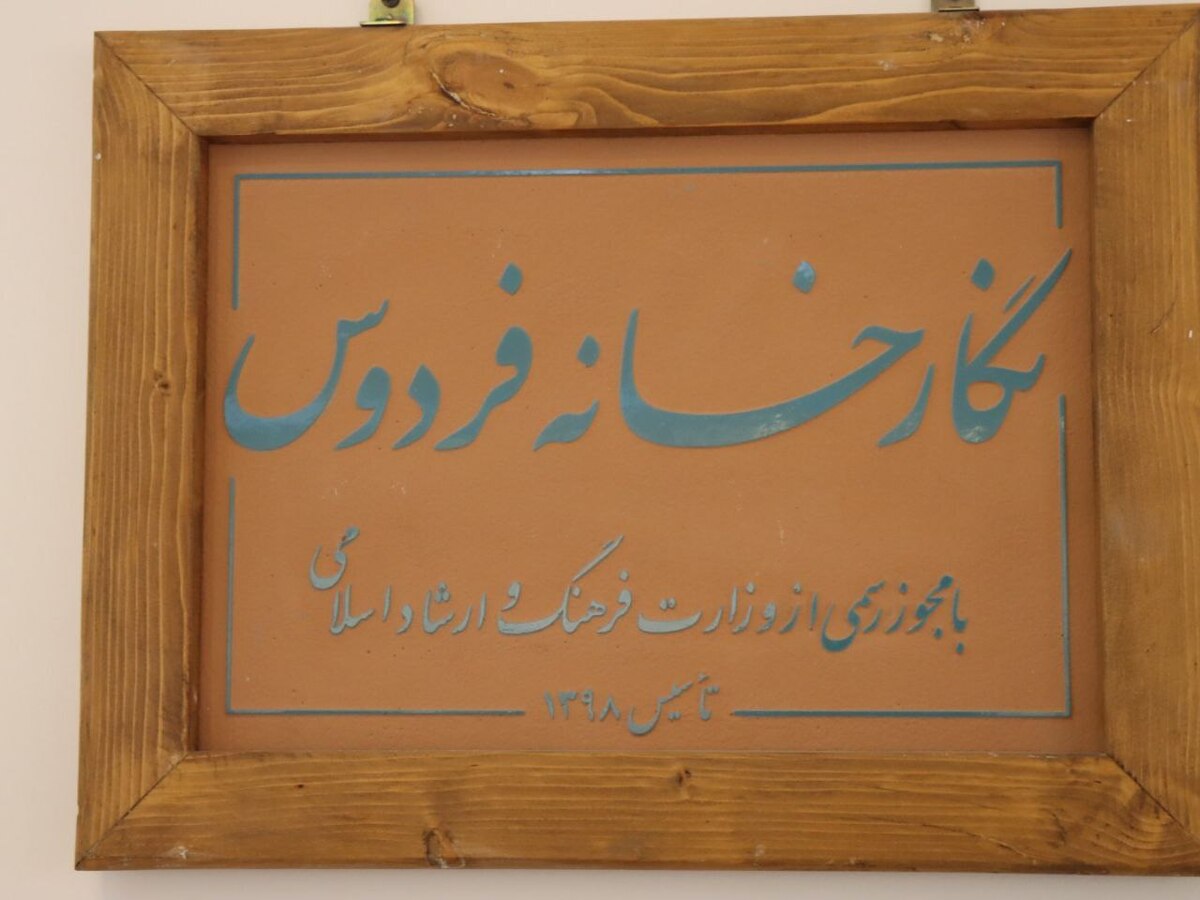 نگارخانه فردوس
با مجوز رسمی از وزارت فرهنگ و ارشاد اسلامی
تأسیس ۱۳۹۸